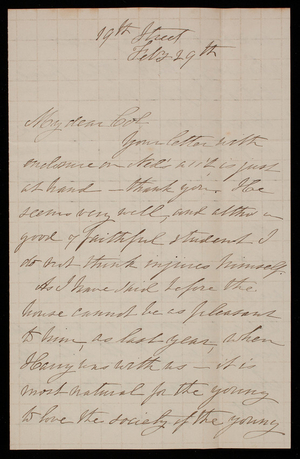 19th Street
Feb'y 29th
My dear Col
Your letter with
enclosure on Ned's a/c is just
at hand – thank you. He
seems very well, and altho a
good & faithful student I
do not think injures himself.
As I have said before the
house cannot be as pleasant
to him, as last year, when
Harry was with us – it is
most natural for the young
to love the society of the young